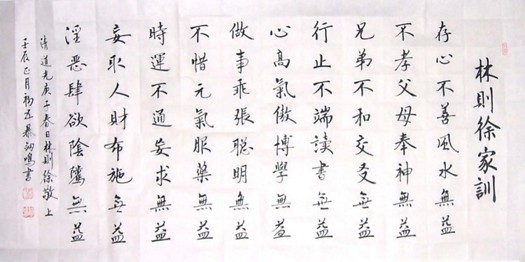 林則徐家訓
存心不善風水無益
不孝父母奉神無益
兄弟不和交友無益
行止不端讀書無益
心高氣傲博學無益
做事乖張聰明無益
不惜元氣服藥無益
時運不通妄求無益
妄取人財布施無益
淫惡肆欲陰騭無益
清道光庚子春日林則徐敬上
壬辰正月初五 鳴書